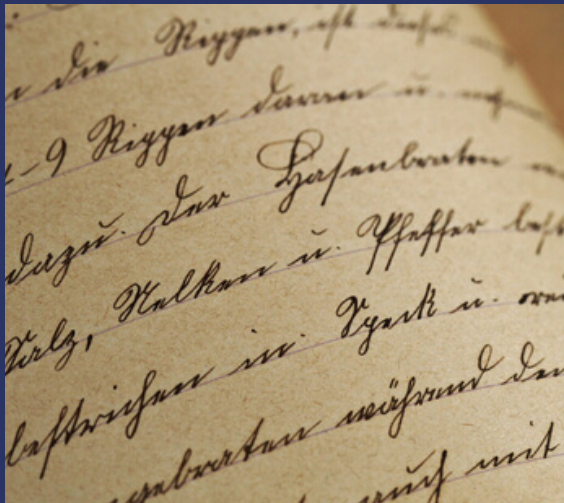 die Rippen, ist dieses
9 Rippen daran u.
dazu. Der Hasenbraten
Salz, Nelken u. Pfeffer
bestrichen in Speck u.
gebraten während den
auch mit